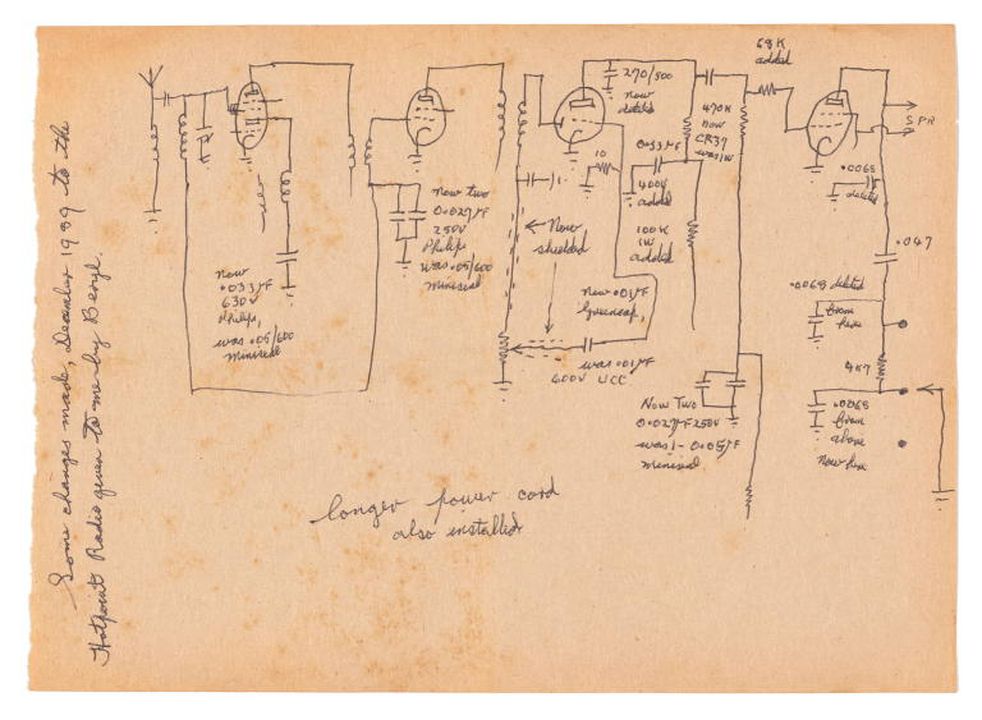 Some changes made, December 1989 to the
Hotpoint Radio given to me by Beryl.
Now
.033µF
630V
Philips,
was .05/600
Minseal
Now two
0.027µF
250V
Philips
was .05/600
Minseal
Now
shielded
270/500
now
deleted
10
0.33µF
400V
added
100K
1W
added
New .01µF
Greencap,
was .01µF
600V UCC
470K
now
CR37
was 1W
68K
added
Now Two
0.027µF 250V
was 1- 0.05µF
Minseal
SPR
.0068
deleted
.047
.0068 deleted
from
here
4K7
.0068
from
above
Now here
longer power cord
also installed